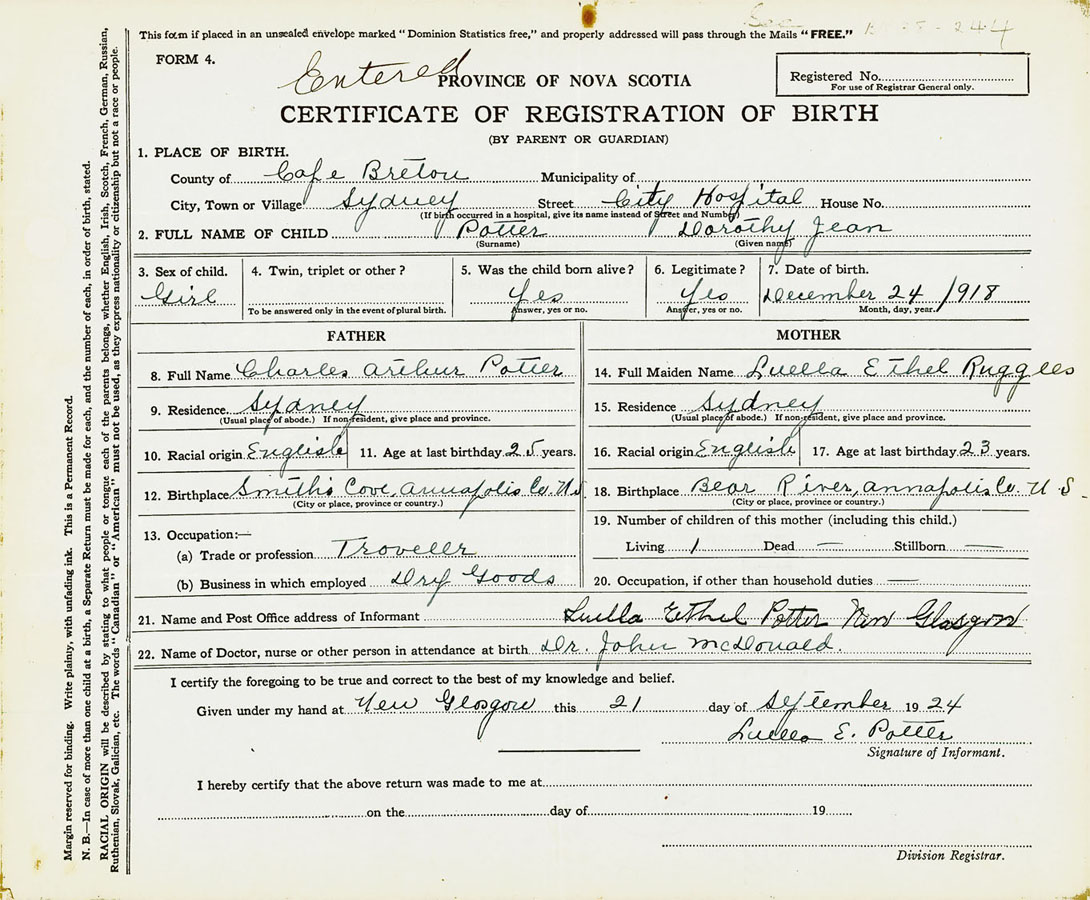 See
244
This form if placed in an unsealed envelope marked "Dominion Statistics free," and properly addressed will pass through the Mails "FREE."
FORM 4.
Entered
PROVINCE OF NOVA SCOTIA
Registered No.
For use of Registrar General only.
CERTIFICATE OF REGISTRATION OF BIRTH
(BY PARENT OR GUARDIAN)
1. PLACE OF BIRTH.
County of Cape Breton Municipality of
City, Town or Village Sydney Street City Hospital House No.
(If birth occurred in a hospital, give its name instead of Street and Number)
2. FULL NAME OF CHILD Potter Dorothy Jean
(Surname) (Given name)
3. Sex of child. 4. Twin, triplet or other? 5. Was the child born alive? 6. Legitimate? 7. Date of birth.
Girl Yes Yes December 24 /1918
To be answered only in the event of plural birth. Answer, yes or no. Answer, yes or no. Month, day, year.
FATHER MOTHER
8. Full Name Charles Arthur Potter 14. Full Maiden Name Luella Ethel Ruggles
9. Residence Sydney 15. Residence Sydney
(Usual place of abode.) If non-resident, give place and province. (Usual place of abode.) If non-resident, give place and province.
10. Racial origin English 11. Age at last birthday 25 years. 16. Racial origin English 17. Age at last birthday 23 years.
12. Birthplace Smith's Cove, Annapolis Co. N.S. 18. Birthplace Bear River, Annapolis Co. N.S.
(City or place, province or country.) (City or place, province or country.)
13. Occupation:— 19. Number of children of this mother (including this child.)
(a) Trade or profession Traveller Living 1 Dead — Stillborn —
(b) Business in which employed Dry Goods 20. Occupation, if other than household duties —
21. Name and Post Office address of Informant Luella Ethel Potter New Glasgow
22. Name of Doctor, nurse or other person in attendance at birth Dr. John McDonald.
I certify the foregoing to be true and correct to the best of my knowledge and belief.
Given under my hand at New Glasgow this 21 day of September 1924
Luella E. Potter
Signature of Informant.
I hereby certify that the above return was made to me at
on the day of 19
Division Registrar.
Margin reserved for binding. Write plainly, with unfading ink. This is a Permanent Record.
N. B.—In case of more than one child at a birth, a Separate Return must be made for each, and the number of each, in order of birth, stated.
RACIAL ORIGIN will be described by stating to what people or tongue each of the parents belongs, whether English, Irish, Scotch, French, German, Russian,
Ruthenian, Slovak, Galician, etc. The words "Canadian" or "American" must not be used, as they express nationality or citizenship but not a race or people.